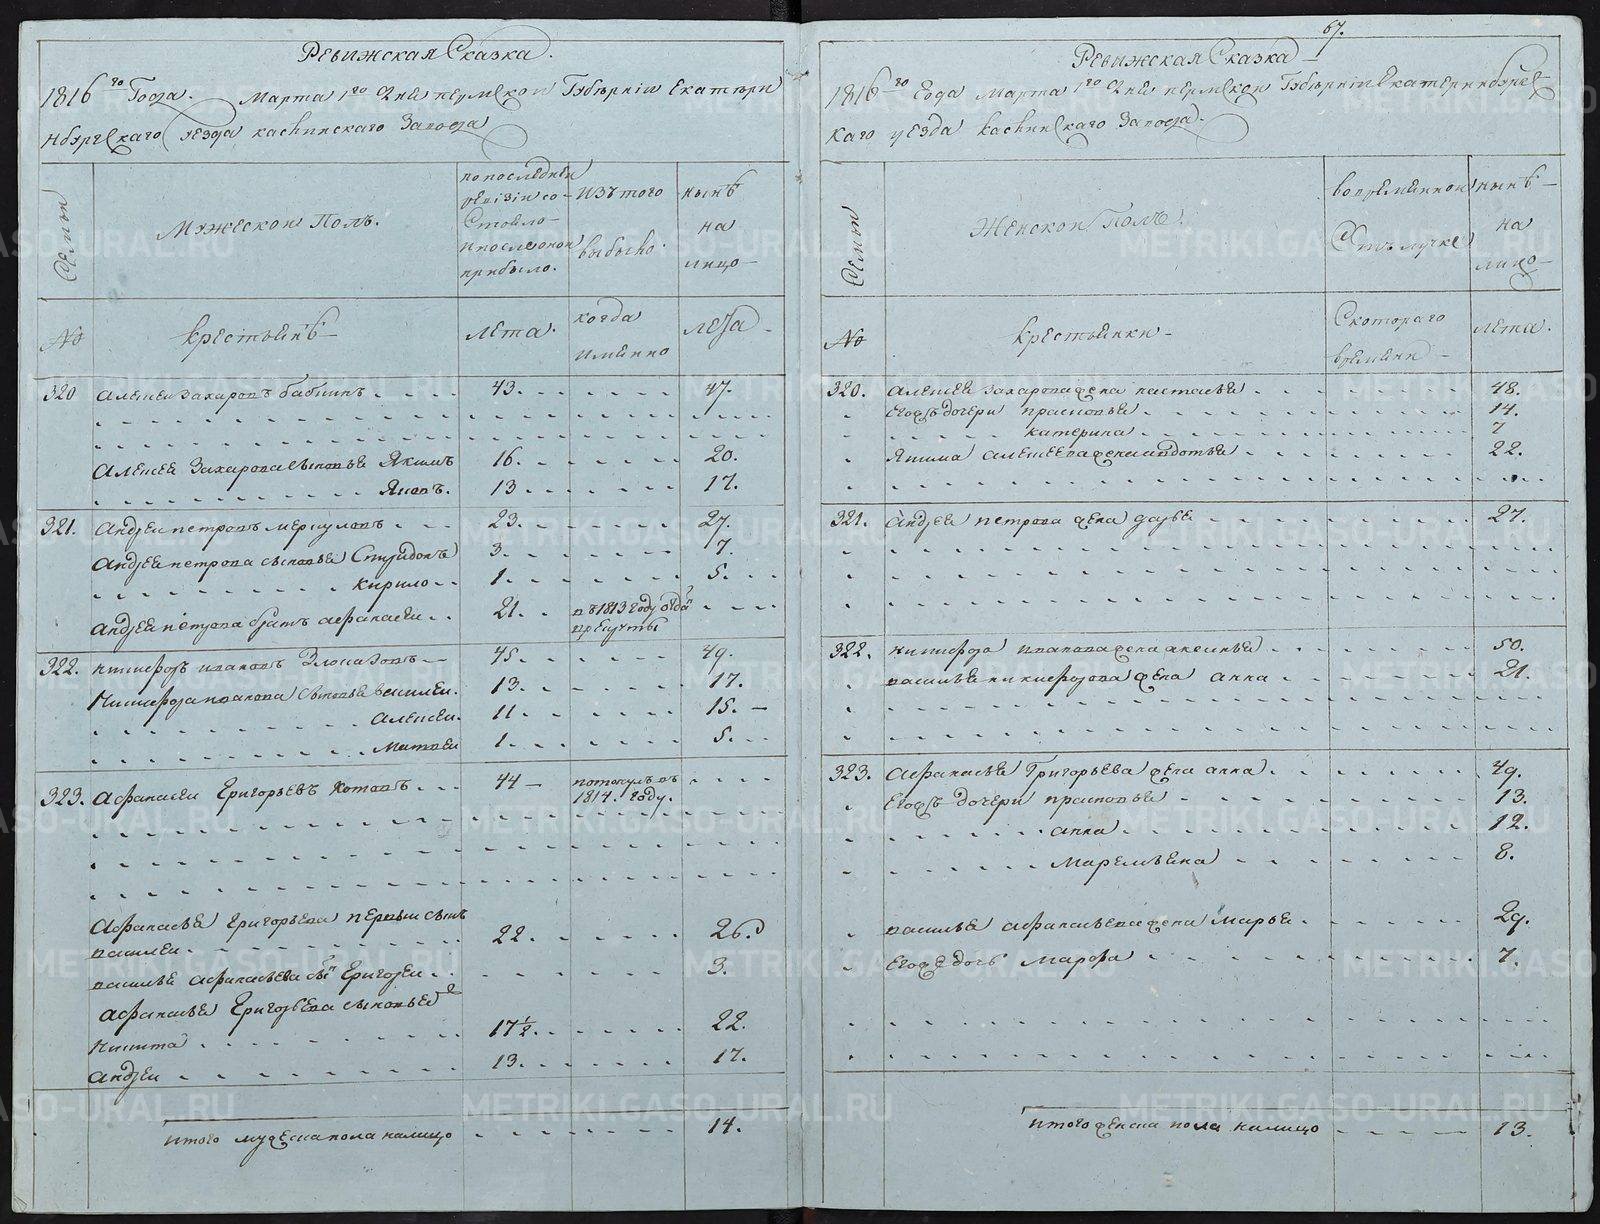 Ревижская Сказка.
1816го Года. Марта 1го Дня пермской Губернiи Екатери
нбургскаго уезда каслинскаго Завода
Семьи
Мужескои Полъ.
по последнеи
ревiзiи со-
стояло
и после оной
прибыло.
Изъ того
выбыло.
нынѣ
на
лицо
№
крестьянѣ
лета.
когда
имянно
лета
320 Алексеи Захаровъ бабкинъ 43. 47.
Алексея Захарова сыновья Якимъ 16. 20.
Яковъ. 13 17.
321. Андреи петровъ меркуловъ 23. 27.
Андрея петрова сыновья Спиридонъ 3. 7.
кирило 1. 5.
Андрея петрова братъ афанасеи 21. въ 1813 году отдан
врекруты
322. никифоръ ивановъ Злоказовъ 45. 49.
Никифора иванова сыновья василеи. 13. 17.
Алексеи. 11. 15.
Матвеи 1. 5.
323. Афанасеи Григорьевъ котовъ 44 потонулъ въ
1814. году.
Афанасья Григорьева первыи сынъ
василеи 22. 26.
василья афанасьева сын Григореи 3.
Афанасья Григорьева сыновья 2е
Никита 17½. 22.
Андреи 13. 17.
итого мужеска пола налицо 14.
67.
Ревижская Сказка
1816го Года Марта 1го Дня пермской Губернiи Екатеринбургс
каго уезда каслинскаго Завода.
Семьи
Женскои Полъ.
вовременнои
отлучке
нынѣ
на
лицо
№
крестьянки
Скотораго
времяни
лета.
320. Алексея Захарова жена настасья 48.
Егожъ дочери прасковья 14.
катерина 7
Якима алексеева жена авдотья 22.
321. Андрея петрова жена дарья 27.
322. никифора иванова жена аксинья 50.
василья никифорова жена анна 21.
323. Афанасья Григорьева жена анна 49.
Егожъ дочери прасковья 13.
анна 12.
Маремьяна 8.
василья афанасьева жена марья 29.
Егоже дочь марфа 7.
итого женска пола налицо 13.
METRIKI.GASO-URAL.RU